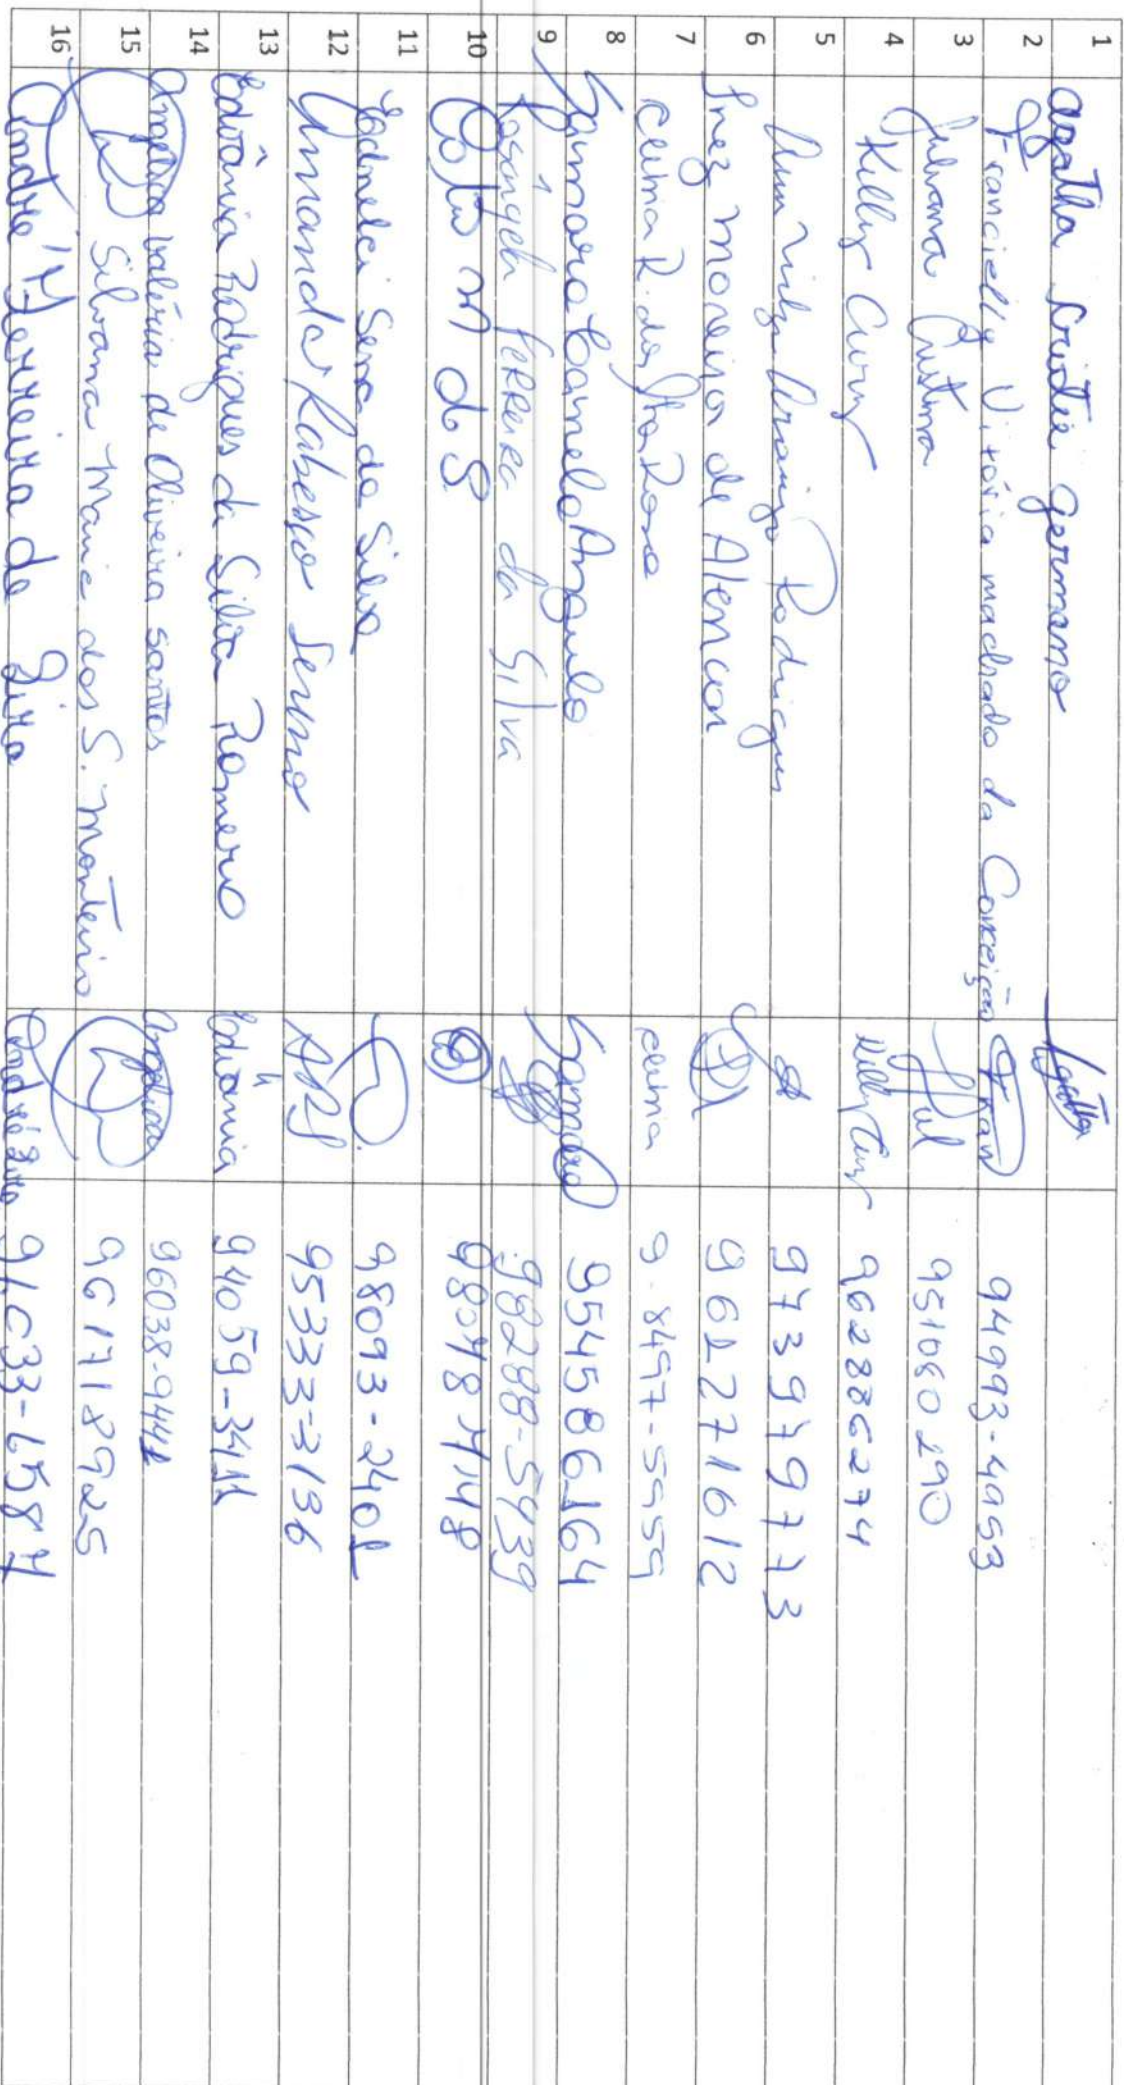 1 Agatha Cristie Germano Agatha
2 Francielly Vitória machado da Conceição Fran 94993-4953
3 Juliana Cristina Jul 951060290
4 Kelly Cury Kelly Cury 962886274
5 Rodrigues 973979773
6 Inez moreira de Alencar 962271612
7 Celma R. da Rosa celma 9.8497-5959
8 Samara Camelo Angulo Samara 954586164
9 Rosângela ferreira da Silva 98288-5439
10 98048
11 Edinelci Sena da Silva 98093-2401
12 Amanda 95333-3136
13 Edivânia Rodrigues da Silva Romero Edivânia 94059-3411
14 Angélica Valéria de Oliveira santos Angélica 96038-9441
15 Silvana Maria dos S. Monteiro 961718925
16 André Ferreira de Lira André Lira